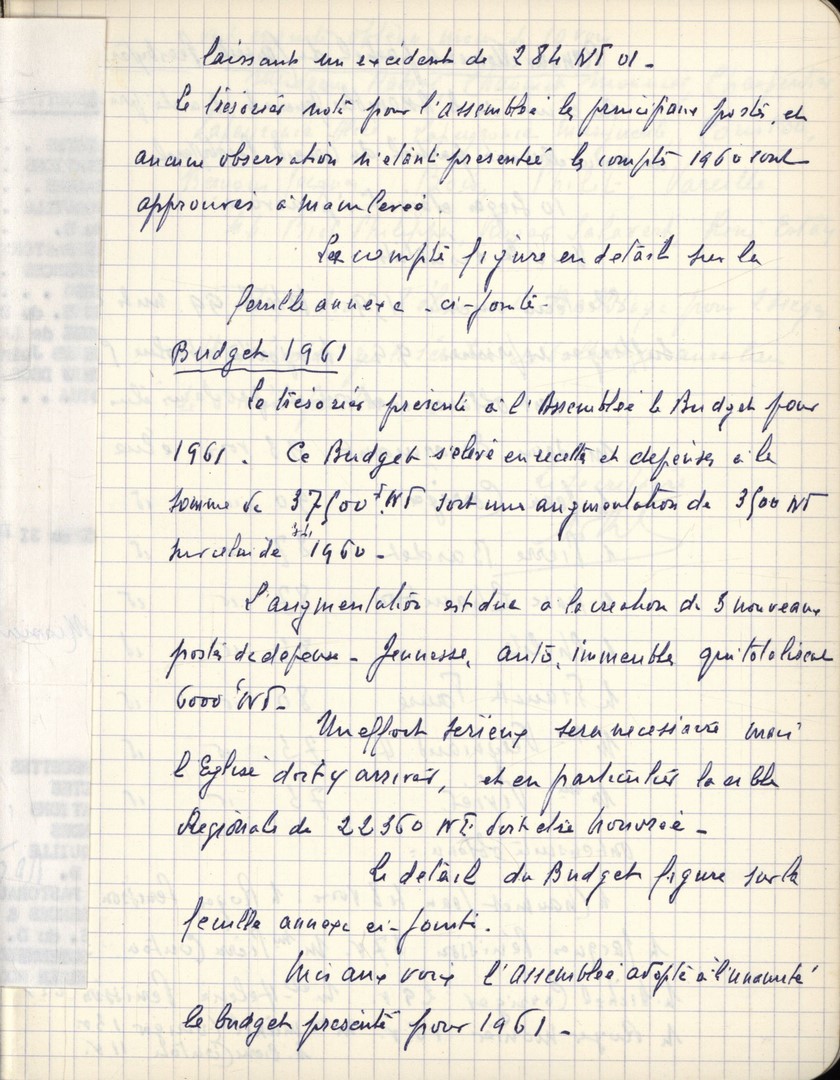 laissant un excédent de 284 NF 01 -
Le trésorier note pour l'assemblée les principaux postes, et
aucune observation n'étant présentée les comptes 1960 sont
approuvés à main levée.
Le compte figure en détail sur la
feuille annexe - ci-jointe -
Budget 1961
Le trésorier présente à l'Assemblée le Budget pour
1961. Ce Budget s'élève en recettes et dépenses à la
somme de 37500 NF soit une augmentation de 3500 NF
sur celui de 1960 -
L'augmentation est due à la création de 3 nouveaux
postes de dépense - Jeunesse, auto, immeuble qui totalisent
6000 NF -
Un effort sérieux sera nécessaire mais
l'Eglise doit y arriver, et en particulier la cible
Régionale de 22360 NF doit être honorée -
Le détail du Budget figure sur la
feuille annexe ci-jointe.
Mis aux voix l'assemblée adopte à l'unanimité
le budget présenté pour 1961 -